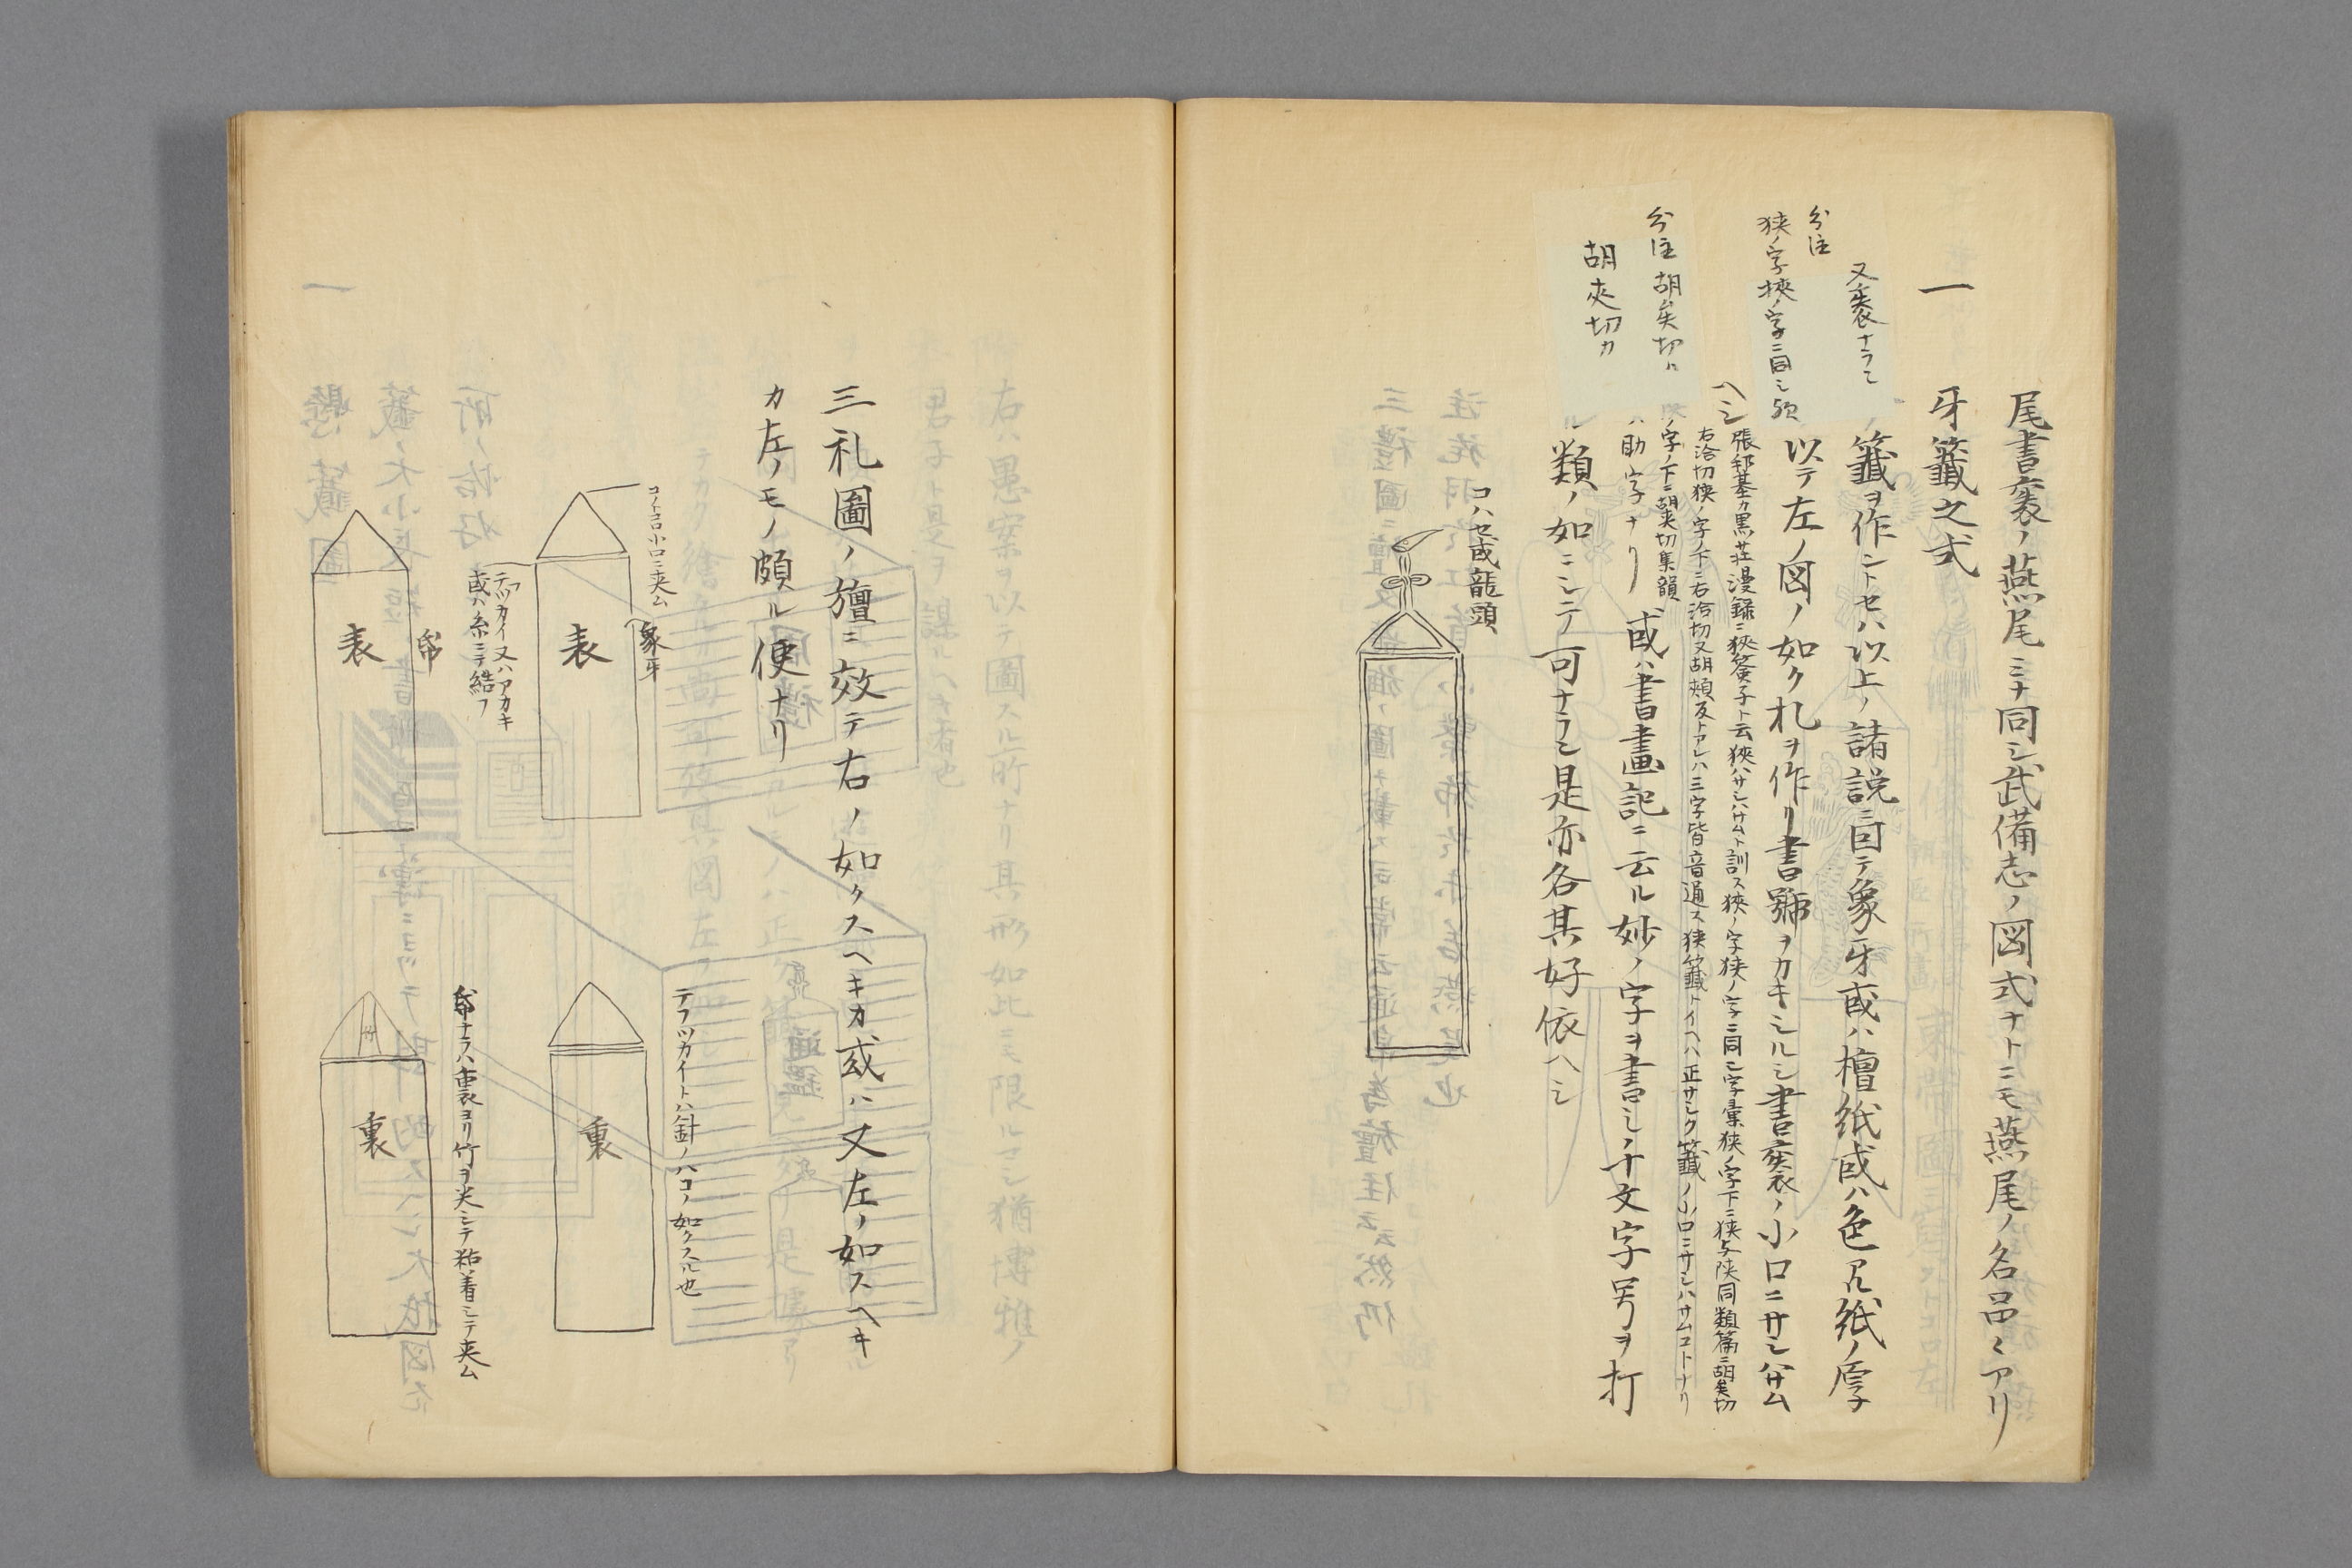 尾書袠ノ燕尾ミナ同シ武備志ノ図式ナトニモ燕尾ノ名品々アリ
一
牙籤之式
又袠ナラン
籤ヲ作ントセハ以上ノ諸説ニ因テ象牙或ハ檀紙或ハ色アル紙ノ厚
分注
狭ノ字挾ノ字ニ同シ歟
以テ左ノ図ノ如ク札ヲ作リ書號ヲカキシルシ書袠ノ小口ニサシハサム
ヘシ
張邦基カ墨荘漫録ニ狹簽子ト云狹ハサシハサムト訓ス狹ノ字狭ノ字ニ同シ字彙狭ノ字下ニ狭与陜同類篇ニ胡夾切
右洽切狭ノ字ノ下ニ右洽切又胡頰反トアレハ三字皆音通ス狭籤トイヘハ正サシク籤ノ小口ニサシハサムコトナリ
分注 胡矣切ハ
胡夾切カ
ノ字ノ下ニ胡夾切集韻
ハ助字ナリ
或ハ書畫記ニ云ル妙ノ字ヲ書シ千文字号ヲ打
ル類ノ如ニシテ可ナラン是亦各其好依ヘシ
コハセ或龍頭
三礼圖ノ旜ニ效テ右ノ如クスヘキカ或ハ又左ノ如スヘキ
カ左ノモノ頗ル便ナリ
コノトコロ小口ニ夾ム
象牙
表
テフツカイ又ハアカキ
或ハ糸ニテ結フ
帋
表
テフツカイトハ針ノハコノ如クスル也
裏
帋ナラハ裏ヨリ竹ヲ尖シテ粘着シテ夾ム
竹
裏